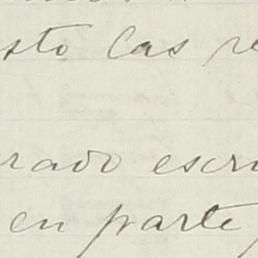 sto las re
rado escri
en parte